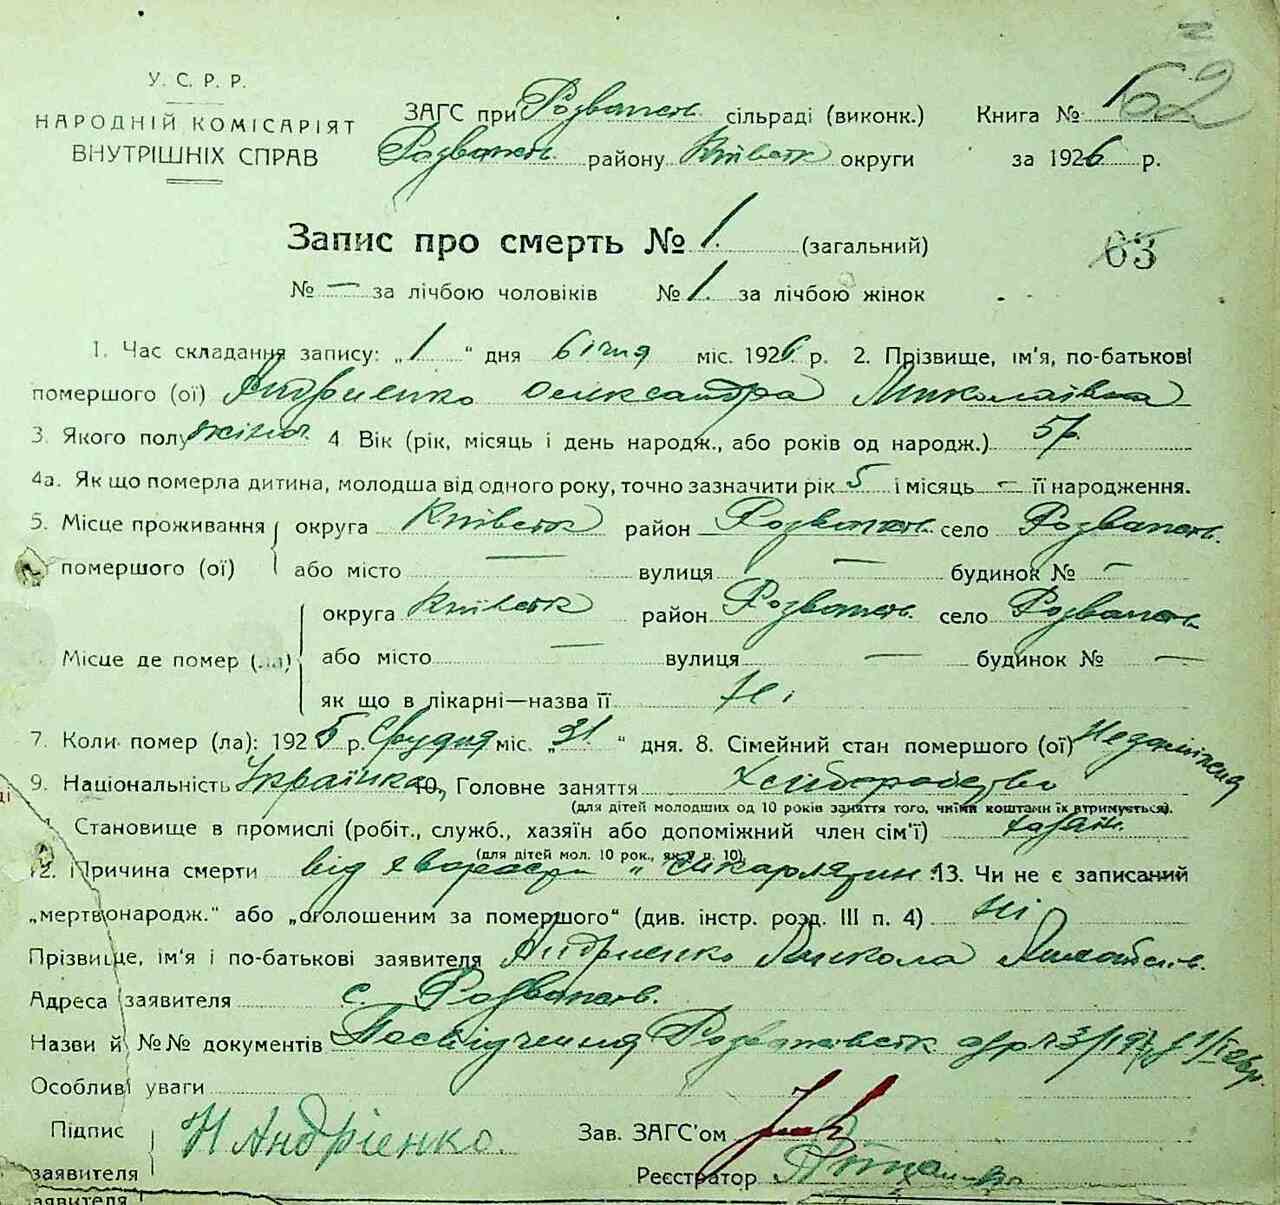 У. С. Р. Р.
НАРОДНІЙ КОМІСАРІЯТ
ВНУТРІШНІХ СПРАВ
ЗАГС при Розважев. сільраді (виконк.) Книга № 1
62
Розважев. району Київськ округи за 1926 р.
Запис про смерть № 1. (загальний)
63
№ — за лічбою чоловіків № 1. за лічбою жінок
1. Час складання запису: „1" дня січня міс. 1926 р. 2. Прізвище, ім'я, по-батькові
помершого (ої) Андриенко Олександра Миколаївна
3. Якого полу жіноч. 4 Вік (рік, місяць і день народж., або років од народж.) 5р.
4а. Як що померла дитина, молодша від одного року, точно зазначити рік 5 і місяць — її народження.
5. Місце проживання округа Київськ район Розважев. село Розважев.
помершого (ої) або місто — вулиця — будинок № —
округа Київськ район Розважев. село Розважев.
Місце де помер або місто — вулиця — будинок № —
як що в лікарні—назва її Ні
7. Коли помер (ла): 1925 р. Грудня міс. „31." дня. 8. Сімейний стан помершого (ої) Незаміжня
9. Національність Українка 10. Головне заняття Хліборобство
(для дітей молодших од 10 років заняття того, чиїми коштами їх втримується).
Становище в промислі (робіт., служб., хазяїн або допоміжний член сім'ї) хазяїн.
(для дітей мол. 10 рок., як у п. 10)
12. Причина смерти від хвороби „скарлятин. 13. Чи не є записаний
„мертвонародж." або „оголошеним за помершого" (див. інстр. розд. III п. 4) Ні
Прізвище, ім'я і по-батькові заявителя Андриенко Микола
Адреса заявителя с. Розважев.
Назви й №№ документів Посвідчення Розважевськ
Особливі уваги
Підпис Н Андрієнко. Зав. ЗАГС'ом
заявителя Реєстратор
заявителя